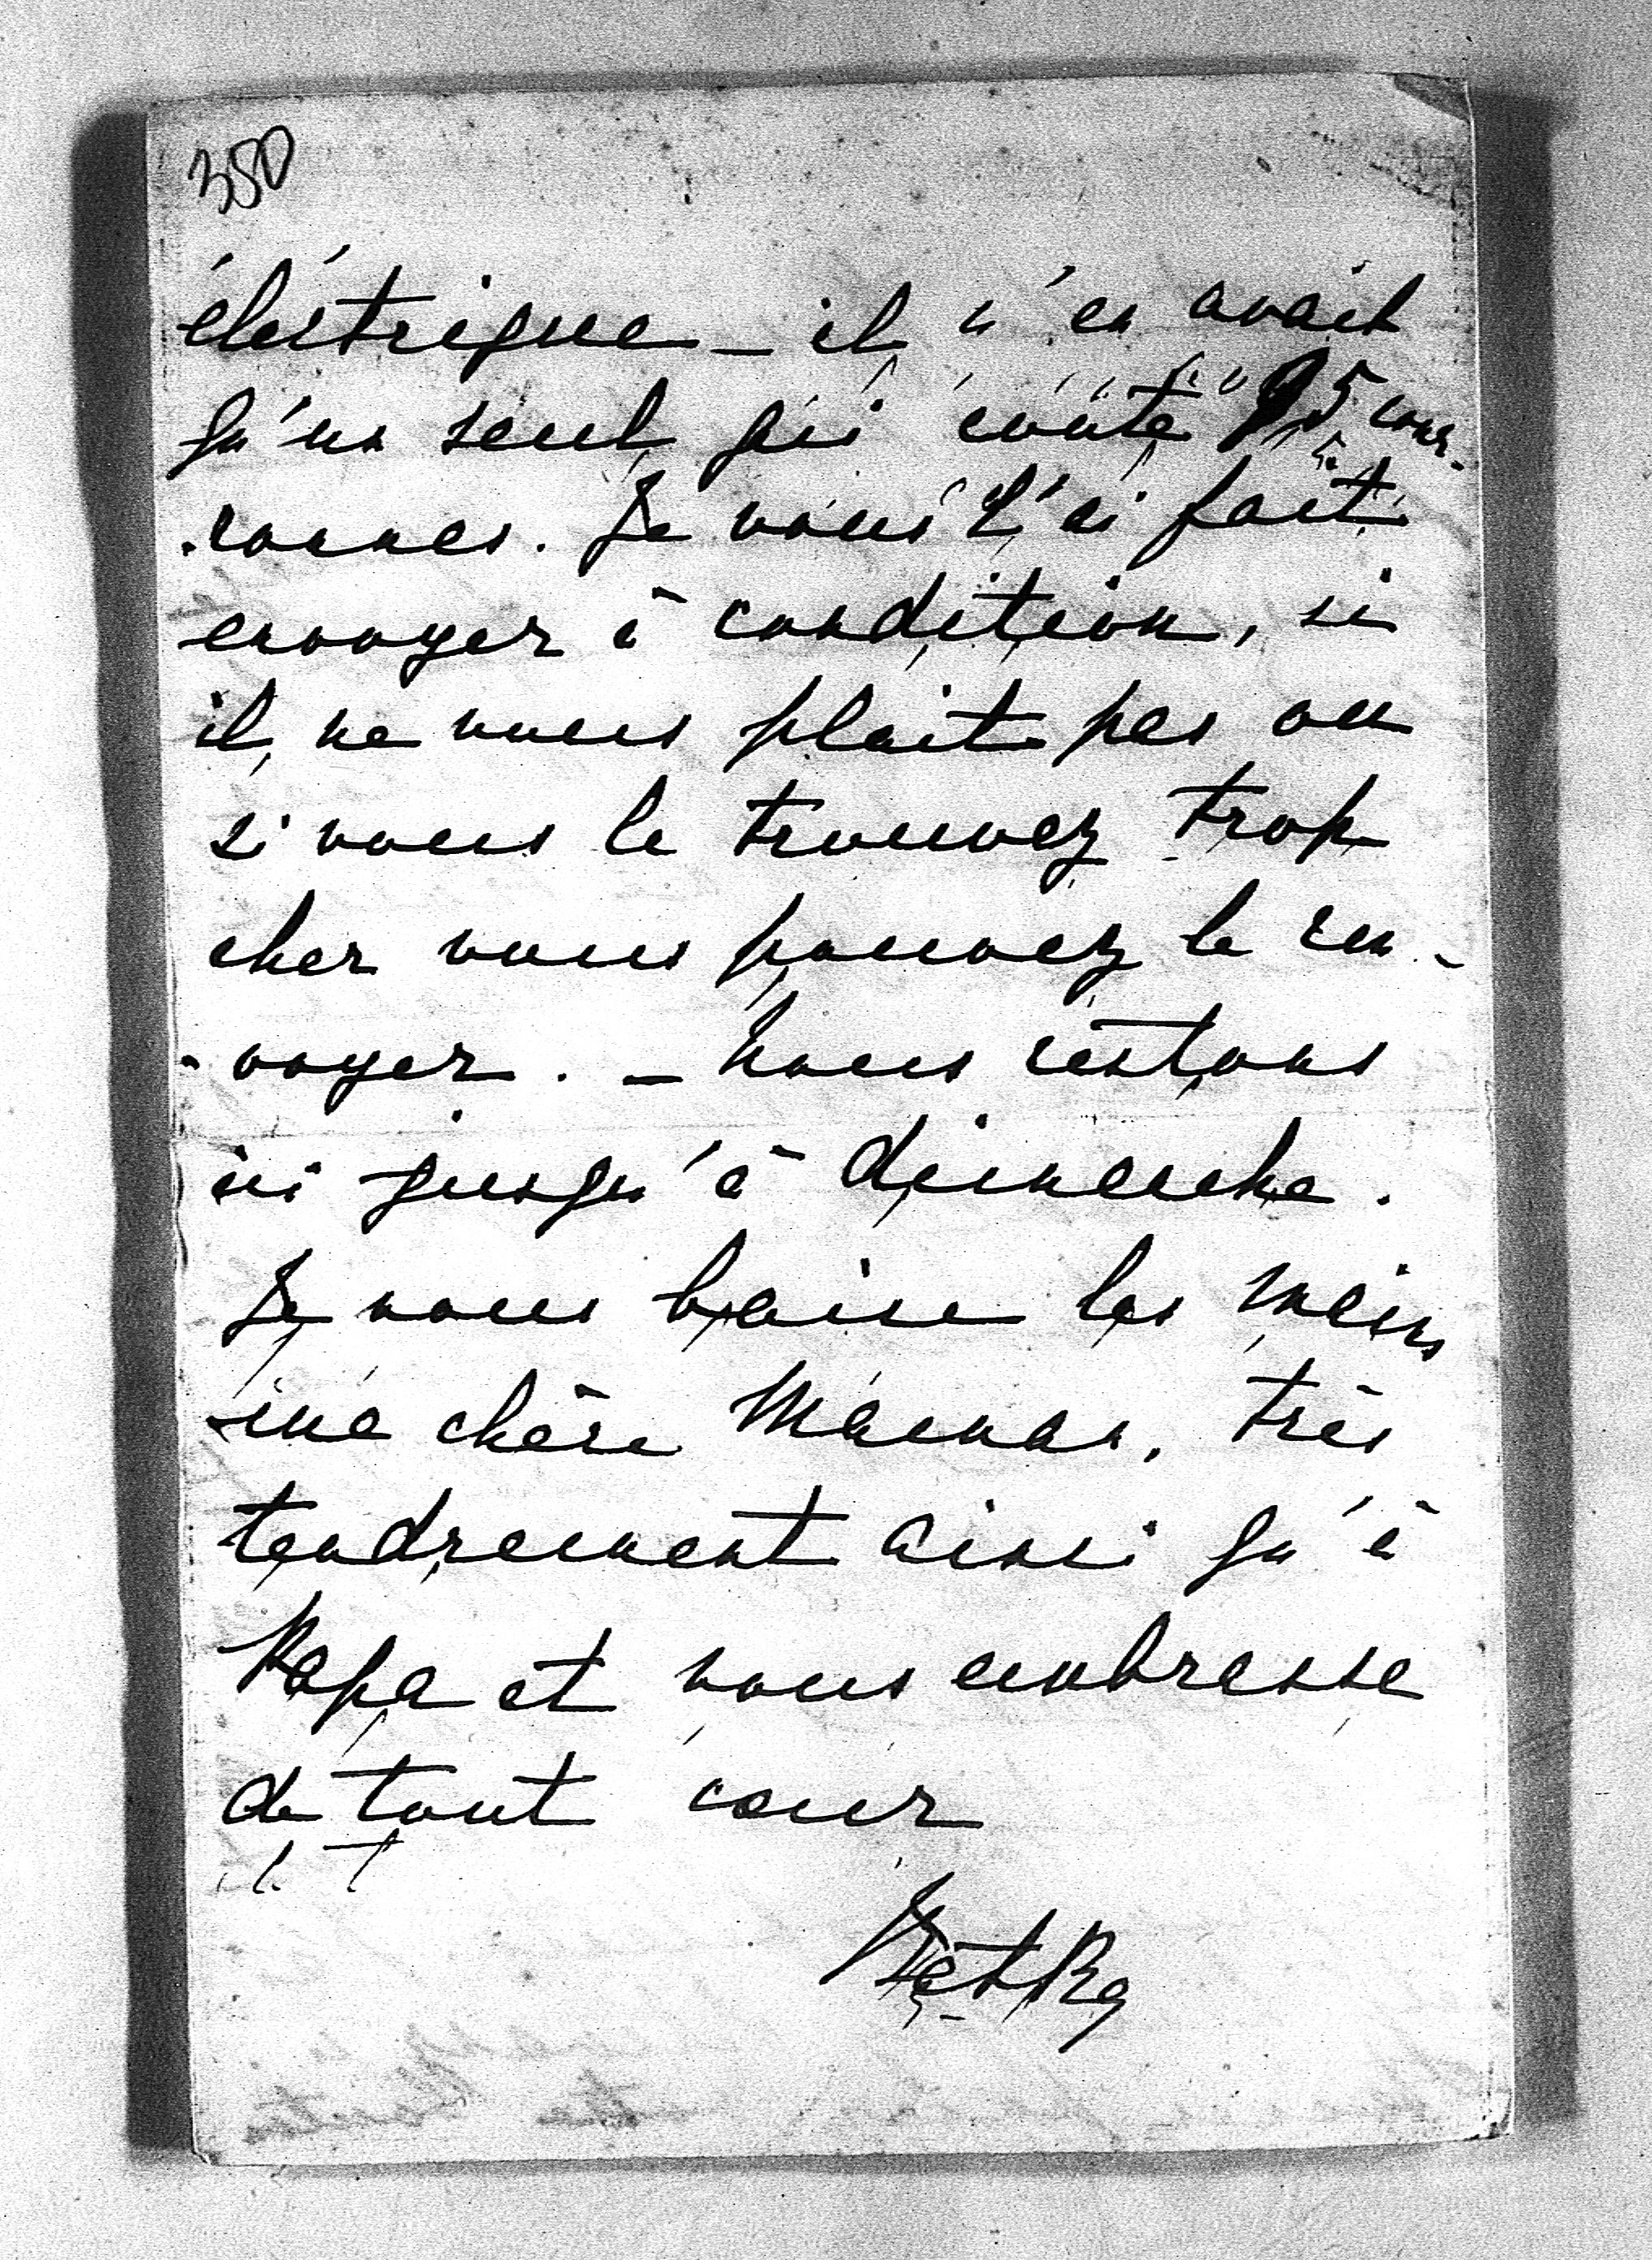 350
électrique – il n'en avait
qu'un seul qui coûte 95 cou-
-ronnes. Je vous l'ai fait
envoyer à condition, si
il ne vous plait pas ou
si vous le trouvez trop
cher vous pouvez le ren-
-voyer. – Nous restons
ici jusqu'à dimanche.
Je vous baise les mains
ma chère Maman, très
tendrement ainsi qu'à
Papa et vous embrasse
de tout cœur